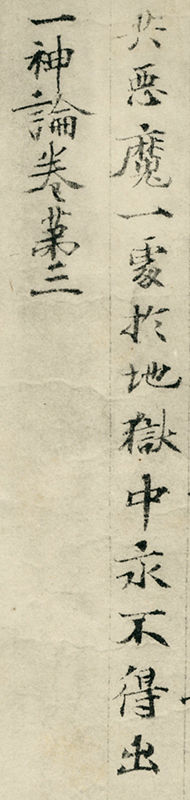 共惡魔一處於地獄中永不得出
一神論卷第三